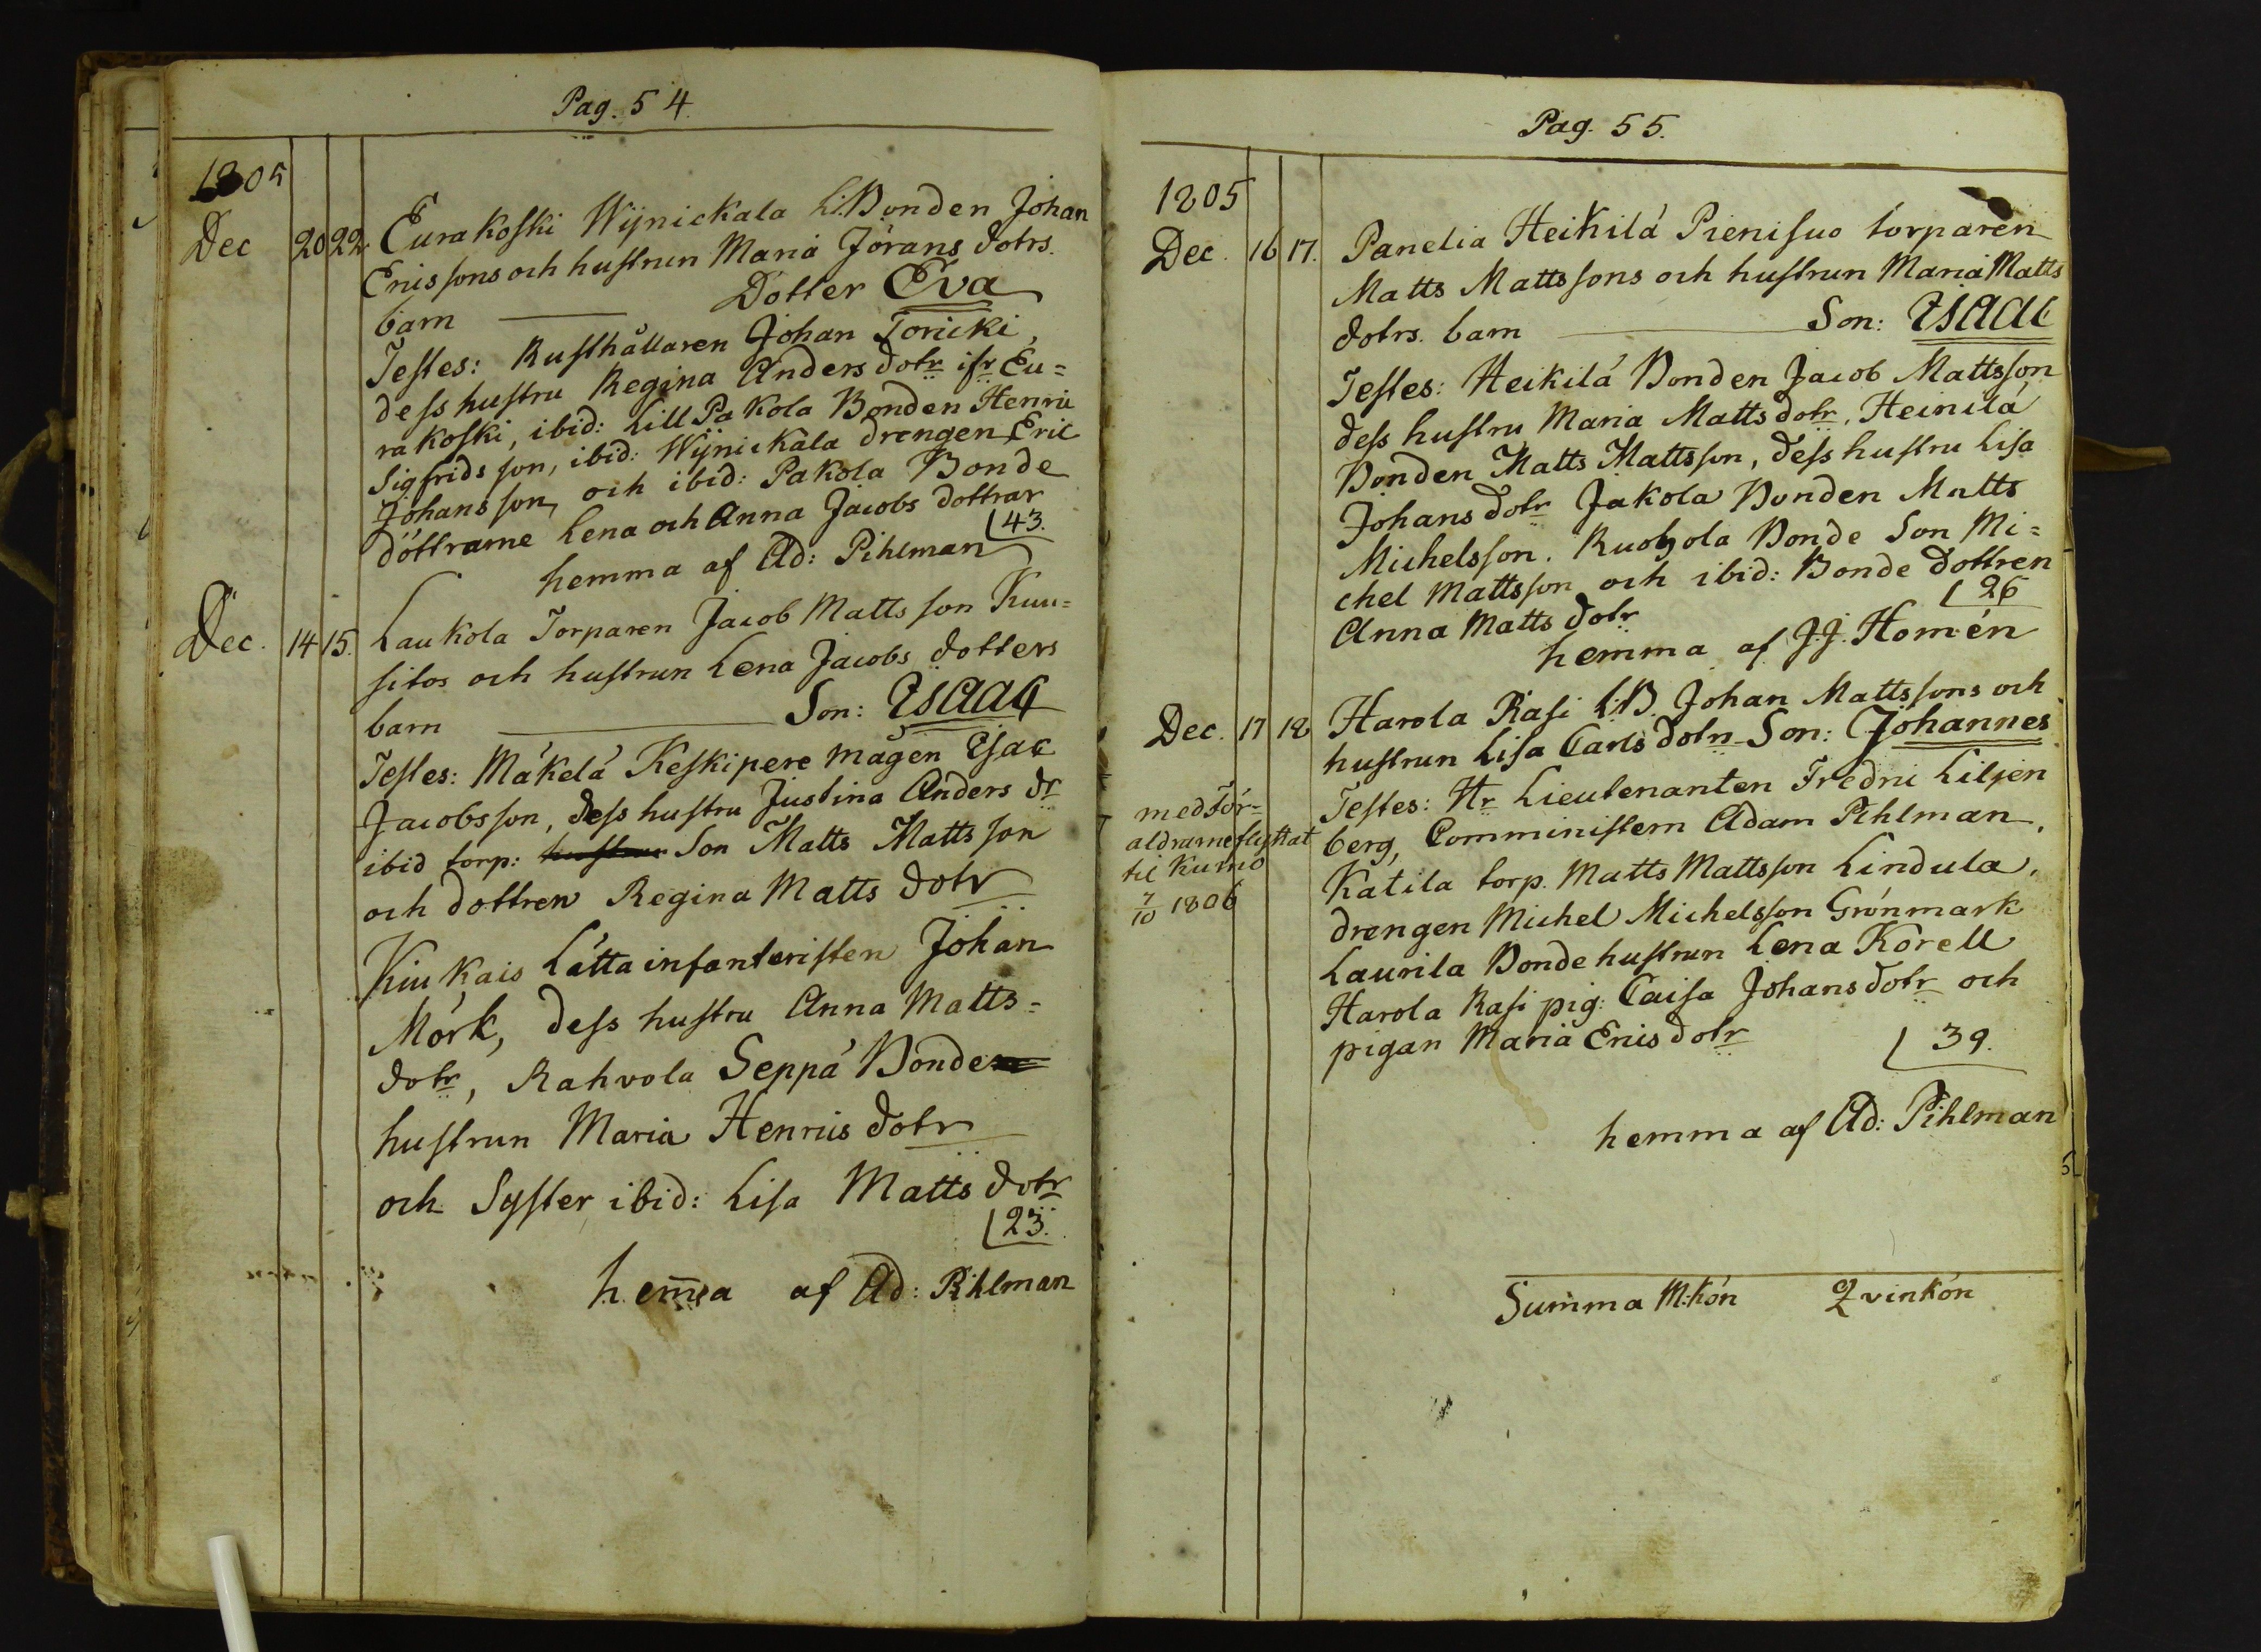 Pag. 54.
1805
Dec 20 22. Eurakoski Wijnickala L:Bonden Johan
Ericssons och hustrun Maria Jörans dotrs.
barn Dotter Eva
Testes: Rusthållaren Johan Toricki,
dess hustru Regina Anders dotr ifr Eu=
rakoski, ibid: Lill Pakola Bonden Henric
Sigfrids son, ibid: Wijnickala drengen Eric
Johans son, och ibid: Pakola Bonde
döttrarne Lena och Anna Jacobs dottrar
43.
hemma af Ad: Pihlman
Dec. 14 15. Laukola Torparen Jacob Matts son Kuu=
sitos och hustrun Lena Jacobs dotters
barn Son: Isaac
Testes: Mäkelä Keskipere mågen Isac
Jacobsson, dess hustru Justina Anders dr
ibid torp: hustrun Son Matts Matts son
och dottren Regina Matts dotr
Kiukais Lätta infanteristen Johan
Mörk, dess hustru Anna Matts=
dotr, Rahvola Seppä Bonde
hustrun Maria Henrics dotr
och Syster ibid: Lisa Matts dotr
23.
hem̄a af Ad: Pihlman
Pag. 55.
1805
Dec. 16 17. Panelia Heikilä Pienisuo torparen
Matts Mattssons och hustrun Maria Matts
dotrs. barn Son: Isaac
Testes: Heikilä Bonden Jacob Mattsson
dess hustru Maria Matts dotr, Heinilä
Bonden Matts Mattsson, dess hustru Lisa
Johans dotr Jakola Bonden Matts
Michelsson. Ruohola Bonde Son Mi=
chel Mattsson och ibid: Bonde dottren
Anna Matts dotr 26
hemma af J.J. Homén
Dec. 17 18 Harola Rasi L:B. Johan Mattssons och
hustrun Lisa Carls dotrs Son: Johannes
Testes: Hr Lieutenanten Fredric Liljen
berg, Comministern Adam Pihlman,
Katila torp. Matts Mattsson Lindula,
drengen Michel Michelsson Grönmark
Laurila Bonde hustrun Lena Korell
Harola Rasi pig: Caisa Johans dotr och
pigan Maria Erics dotr 39.
med för=
aldrarne flyttat
til Kumo
7/10 1806
hemma af Ad: Pihlman
Summa M:kön Qvinkön